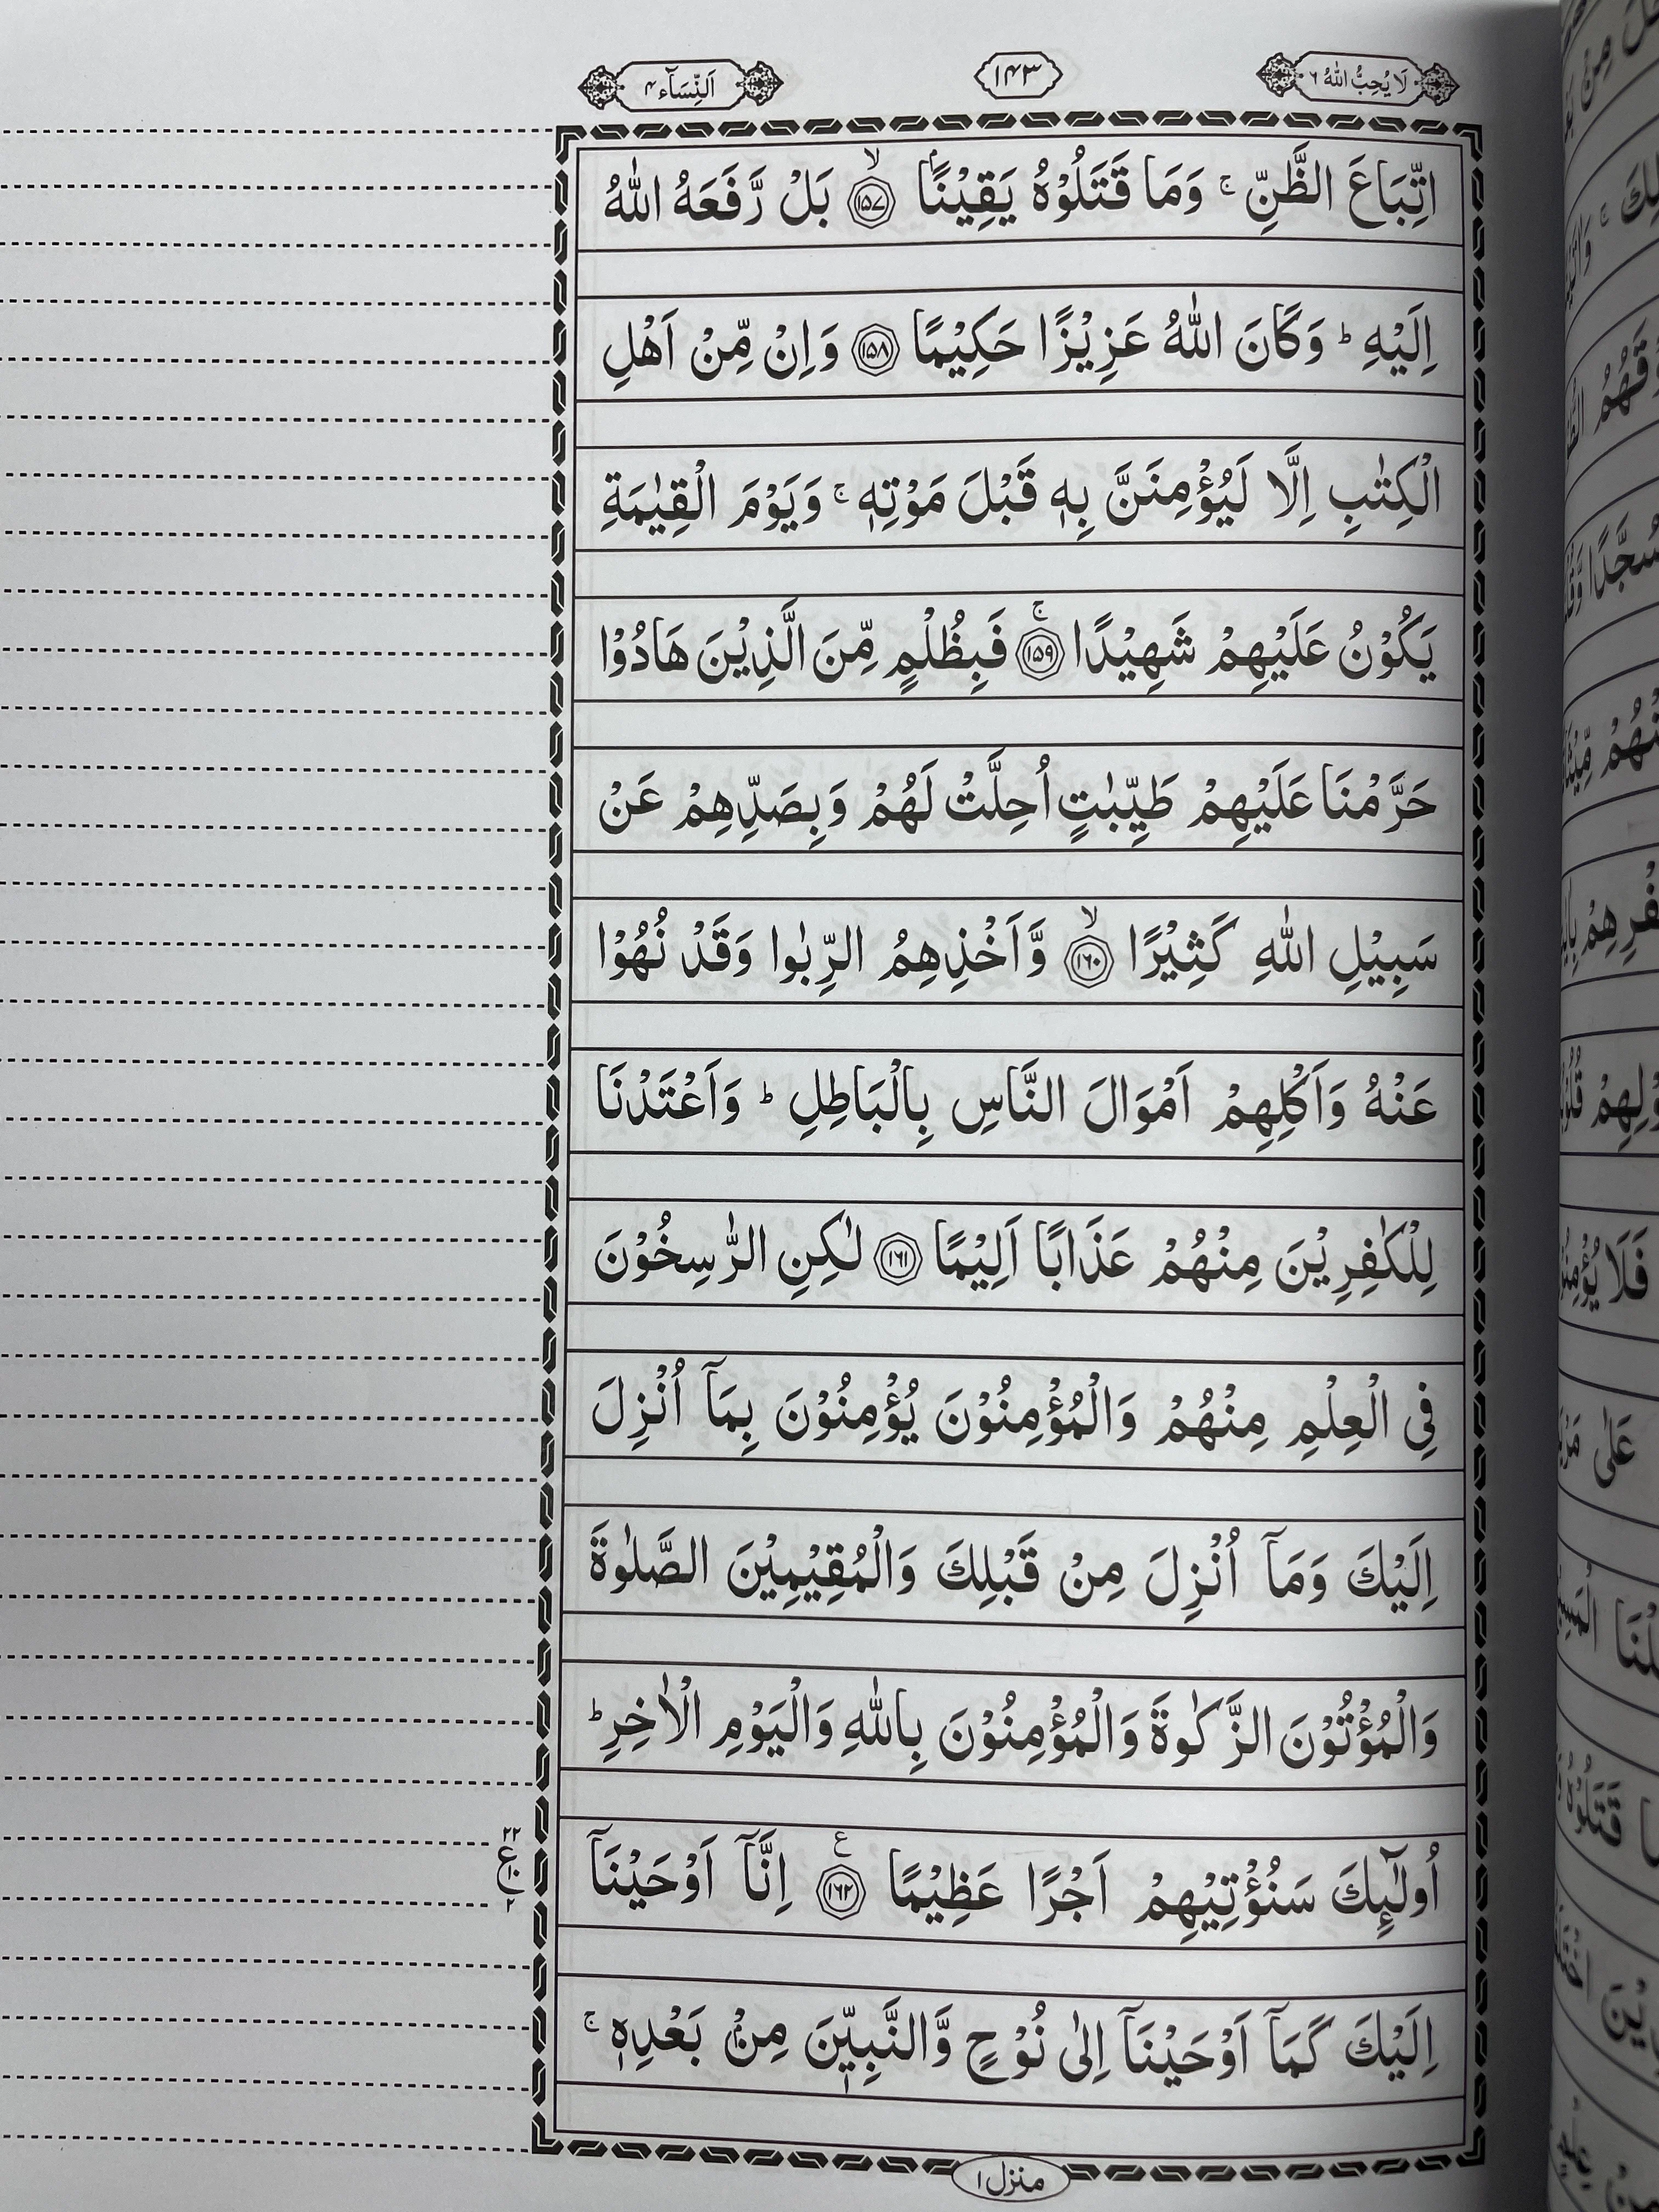 لَا يُحِبُّ اللّٰهُ ٦
١٤٣
اَلنِّسَآء ٤
اتِّبَاعَ الظَّنِّ ۚ وَمَا قَتَلُوْهُ يَقِيْنًاۢ ﴿١٥٧﴾ۙ بَلْ رَّفَعَهُ اللّٰهُ
اِلَيْهِ ؕ وَكَانَ اللّٰهُ عَزِيْزًا حَكِيْمًا ﴿١٥٨﴾ وَاِنْ مِّنْ اَهْلِ
الْكِتٰبِ اِلَّا لَيُؤْمِنَنَّ بِهٖ قَبْلَ مَوْتِهٖ ۚ وَيَوْمَ الْقِيٰمَةِ
يَكُوْنُ عَلَيْهِمْ شَهِيْدًا ﴿١٥٩﴾ۚ فَبِظُلْمٍ مِّنَ الَّذِيْنَ هَادُوْا
حَرَّمْنَا عَلَيْهِمْ طَيِّبٰتٍ اُحِلَّتْ لَهُمْ وَبِصَدِّهِمْ عَنْ
سَبِيْلِ اللّٰهِ كَثِيْرًا ﴿١٦٠﴾ۙ وَّاَخْذِهِمُ الرِّبٰوا وَقَدْ نُهُوْا
عَنْهُ وَاَكْلِهِمْ اَمْوَالَ النَّاسِ بِالْبَاطِلِ ؕ وَاَعْتَدْنَا
لِلْكٰفِرِيْنَ مِنْهُمْ عَذَابًا اَلِيْمًا ﴿١٦١﴾ لٰكِنِ الرّٰسِخُوْنَ
فِي الْعِلْمِ مِنْهُمْ وَالْمُؤْمِنُوْنَ يُؤْمِنُوْنَ بِمَآ اُنْزِلَ
اِلَيْكَ وَمَآ اُنْزِلَ مِنْ قَبْلِكَ وَالْمُقِيْمِيْنَ الصَّلٰوةَ
وَالْمُؤْتُوْنَ الزَّكٰوةَ وَالْمُؤْمِنُوْنَ بِاللّٰهِ وَالْيَوْمِ الْاٰخِرِ ؕ
اُولٰٓئِكَ سَنُؤْتِيْهِمْ اَجْرًا عَظِيْمًا ﴿١٦٢﴾ع اِنَّآ اَوْحَيْنَآ
اِلَيْكَ كَمَآ اَوْحَيْنَآ اِلٰى نُوْحٍ وَّالنَّبِيّٖنَ مِنْۢ بَعْدِهٖ ۚ
منزل ١